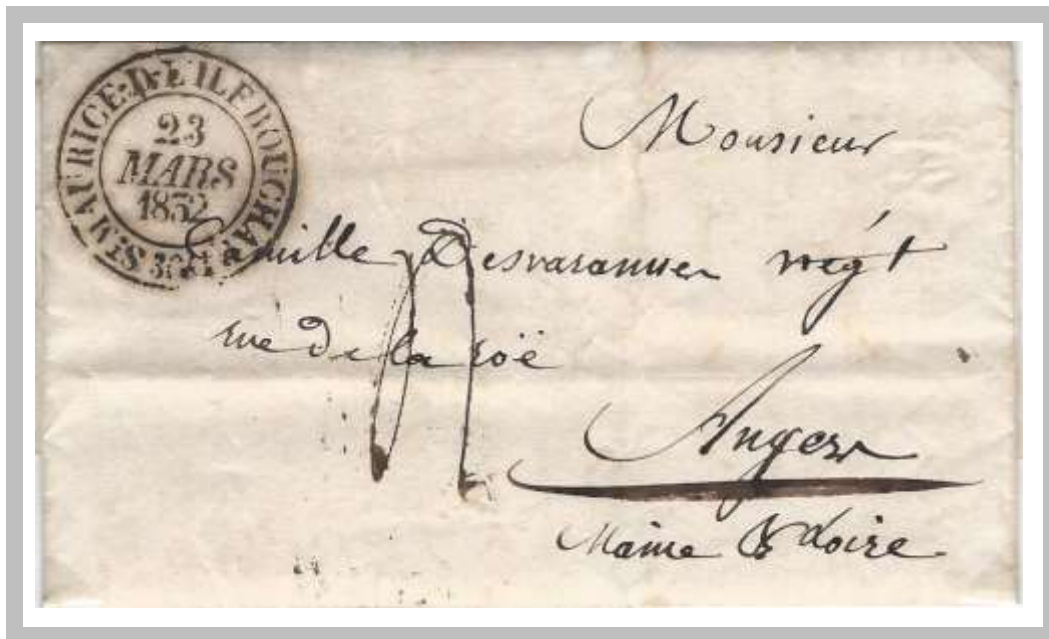 ST MAURICE-D-L'ILE BOUCHA
23
MARS
1832
Monsieur
Camille Desvarannes négt
rue de la roë
Angers
Maine & Loire